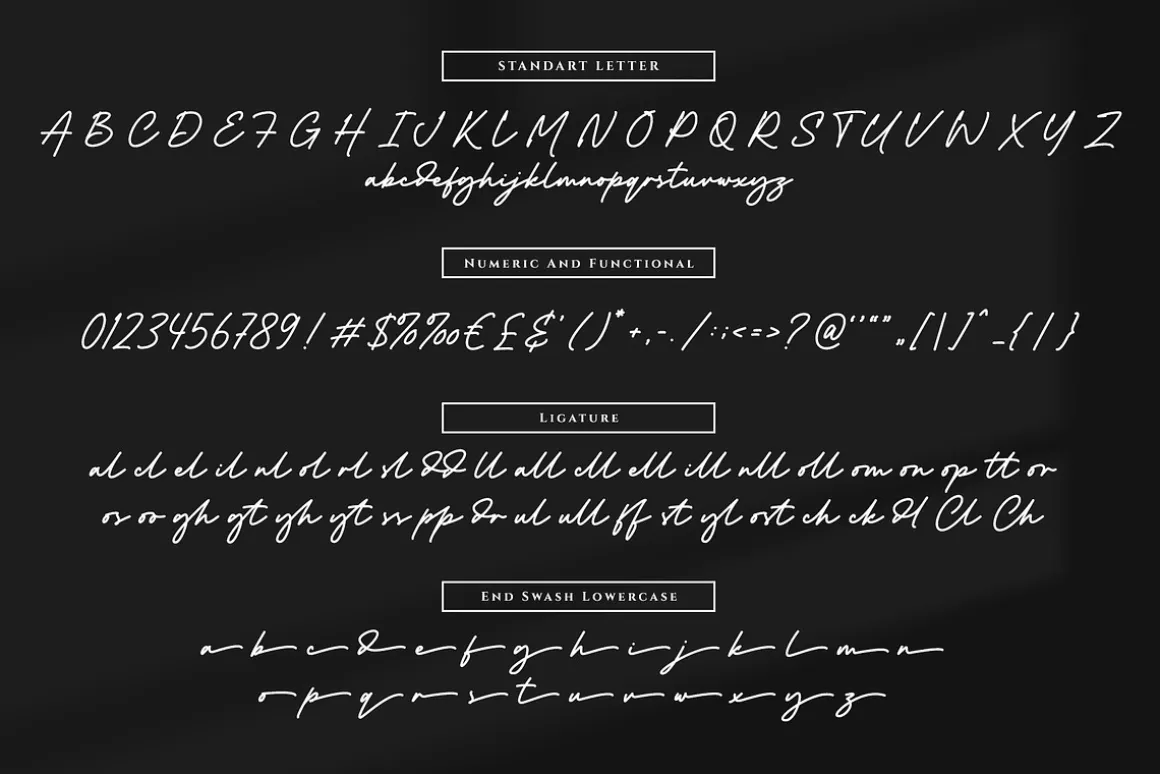 STANDART LETTER
A B C D E F G H I J K L M N O P Q R S T U V W X Y Z
abcdefghijklmnopqrstuvwxyz
NUMERIC AND FUNCTIONAL
0123456789!#$%‰€£&'()*+,-./:;<=>?@‘’“”„[\]^_{|}
LIGATURE
al cl el il nl ol rl sl dd ll all cll ell ill nll oll om on op tt or
os oo gh gt yh yt ss pp dr ul ull ff st yl ost ch ck dl Cl Ch
END SWASH LOWERCASE
a b c d e f g h i j k l m n
o p q r s t u v w x y z